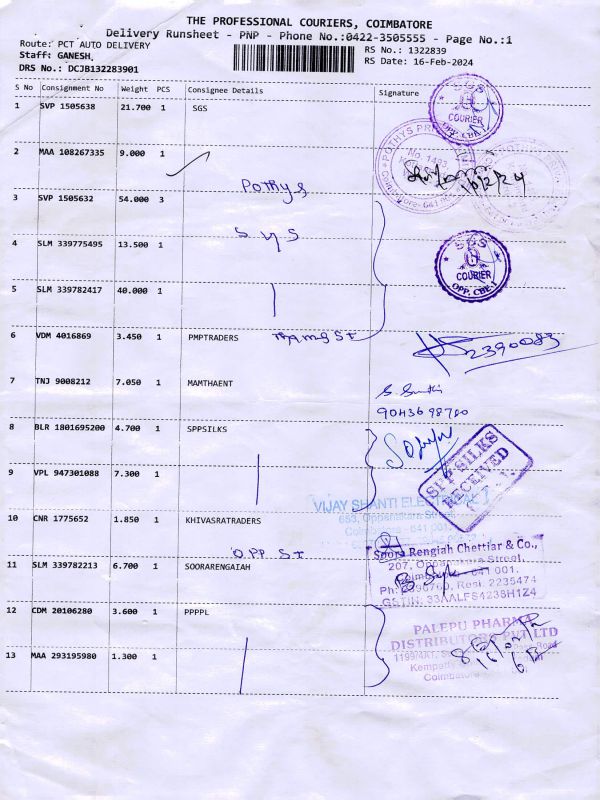 THE PROFESSIONAL COURIERS, COIMBATORE
Delivery Runsheet - PNP - Phone No.:0422-3505555 - Page No.:1
Route: PCT AUTO DELIVERY
RS No.: 1322839
Staff: GANESH
RS Date: 16-Feb-2024
DRS No.: DCJB132283901
S No Consignment No Weight PCS Consignee Details Signature
1 SVP 1505638 21.700 1 SGS
SGS
COURIER
OPP. CBE-1
2 MAA 108267335 9.000 1
POTHYS
No. 1483
16/2/24
Pothys
3 SVP 1505632 54.000 3
SGS
4 SLM 339775495 13.500 1
SGS
COURIER
OPP. CBE-1
5 SLM 339782417 40.000 1
6 VDM 4016869 3.450 1 PMPTRADERS
2390083
7 TNJ 9008212 7.050 1 MAMTHAENT
9043698700
8 BLR 1801695200 4.700 1 SPPSILKS
SPP SILKS
RECEIVED
9 VPL 947301088 7.300 1
VIJAY SHANTI ELECTRICAL
653, Oppanakara Street
10 CNR 1775652 1.850 1 KHIVASRATRADERS
OPP ST
Soora Rengiah Chettiar & Co.,
207, Oppanakara Street,
Coimbatore - 641 001.
11 SLM 339782213 6.700 1 SOORARENGAIAH
Resi. 2235474
GSTIN: 33AALFS4238H1Z4
12 CDM 20106280 3.600 1 PPPPL
PALEPU PHARMA
DISTRIBUTORS PVT LTD
13 MAA 293195980 1.300 1